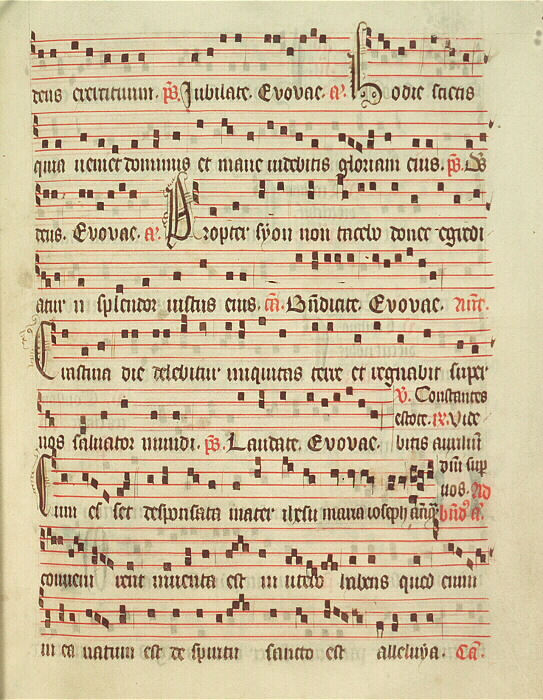 deus exercituum. ps. Jubilate. Evovae. a. Hodie scietis
quia veniet dominus et mane videbitis gloriam eius. ps. Ds
deus. Evovae. a. Propter syon non tacebo donec egredi
atur ut splendor iustus eius. ca. Bndicite. Evovae. Ant.
Crastina die delebitur iniquitas terre et regnabit super
nos salvator mundi. ps. Laudate. Evovae.
V. Constantes
estote. R. Vide
bitis auxiliū
dni sup
vos. Ad
bnds a.
Cum es set desponsata mater ihesu maria ioseph anq
conveni rent inventa est in utero habens quod enim
in ea natum est de spiritu sancto est alleluya. Ca.